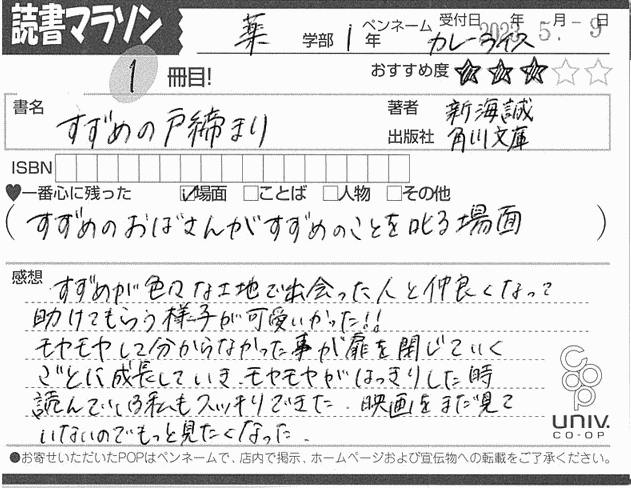 読書マラソン
薬 学部 1 年 ペンネーム カレーライス 受付日 2023年 5.月-9日
1 冊目!
おすすめ度 ★★★☆☆
書名 すずめの戸締まり
著者 新海誠
出版社 角川文庫
ISBN
♥一番心に残った ☑場面 □ことば □人物 □その他
(すずめのおばさんがすずめのことを叱る場面)
感想
すずめが色々な土地で出会った人と仲良くなって
助けてもらう様子が可愛いかった!!
モヤモヤして分からなかった事が扉を閉じていく
ごとに成長していき、モヤモヤがはっきりした時
読んでいる私もスッキリできた。映画をまだ見て
いないのでもっと見たくなった。
coop
UNIV.
CO-OP
●お寄せいただいたPOPはペンネームで、店内で掲示、ホームページおよび宣伝物への転載をご了承ください。